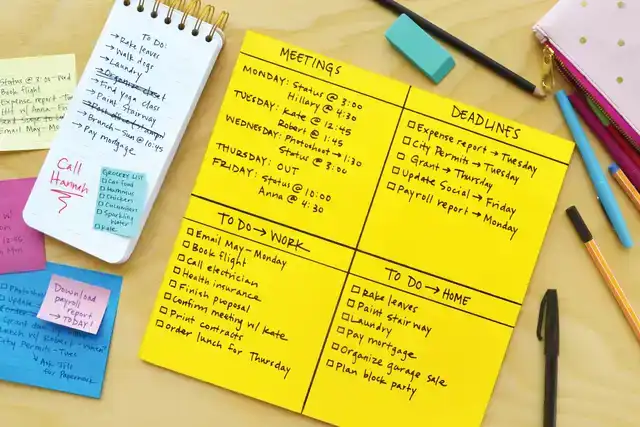 Status @ 3:00 - Wed
Book flight
Expense report - Tu
Email May - Mon
TO DO:
→ Rake leaves
→ Walk dogs
→ Laundry
→ Organize closet
→ Find yoga class
→ Paint Stairway
→ Post office (stamps)
→ Branch - Sun @ 10:45
→ Pay mortgage
Call
Hannah
GROCERY LIST
□ Cat food
□ Hummus
□ Chicken
□ Cucumbers
□ Sparkling
Water
□ Kale
12:45
Download
payroll
report
→ TODAY!
City Permits - Tues
↳ Ask
for
Paperwork
MEETINGS
MONDAY: Status @ 3:00
Hillary @ 4:30
TUESDAY: Kate @ 12:45
Robert @ 1:45
WEDNESDAY: Photoshoot → 1:30
Status @ 3:00
THURSDAY: OUT
FRIDAY: Status @ 10:00
Anna @ 4:30
DEADLINES
□ Expense report → Tuesday
□ City Permits → Tuesday
□ Grant → Thursday
□ Update Social → Friday
□ Payroll report → Monday
TO DO → WORK
□ Email May - Monday
□ Book flight
□ Call electrician
□ Health insurance
□ Finish puposal
□ Confirm meeting w/ Kate
□ Print contracts
□ Order lunch for Thursday
TO DO → HOME
□ Rake leaves
□ Paint Stairway
□ Laundry
□ Pay mortgage
□ Organize garage sale
□ Plan block party